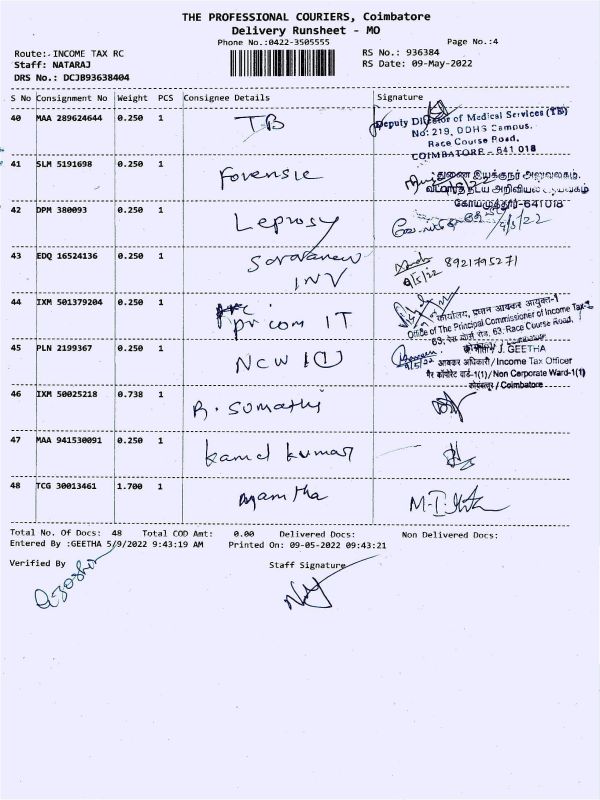 THE PROFESSIONAL COURIERS, Coimbatore
Delivery Runsheet - MO
Phone No.:0422-3505555
Page No.:4
Route:- INCOME TAX RC
RS No.: 936384
Staff: NATARAJ
RS Date: 09-May-2022
DRS No.: DCJB93638404
S No Consignment No Weight PCS Consignee Details Signature
40 MAA 289624644 0.250 1 TB
Deputy Director of Medical Services (TB)
No: 219, DDHS Campus,
Race Course Road,
COIMBATORE - 641 018
41 SLM 5191698 0.250 1 Forensic
துணை இயக்குநர் அலுவலகம்,
கோயமுத்தூர்-641018
42 DPM 380093 0.250 1 Leprosy
9/5/22
43 EDQ 16524136 0.250 1 Saravanan
INV
8921795271
9/5/22
44 IXM 501379204 0.250 1
pr com IT
कार्यालय, प्रधान आयकर आयुक्त-1
Office of The Principal Commissioner of Income Tax-1
63, रेस कोर्स रोड, 63, Race Course Road,
45 PLN 2199367 0.250 1 NCW 1(1)
J. GEETHA
9/5/22
आयकर अधिकारी / Income Tax Officer
गैर कॉर्पोरेट वार्ड-1(1) / Non Corporate Ward-1(1)
कोयंबत्तूर / Coimbatore
46 IXM 50025218 0.738 1 R. Sumathi
47 MAA 941530091 0.250 1 kamal kumar
48 TCG 30013461 1.700 1 Mamtha
Total No. Of Docs: 48 Total COD Amt: 0.00 Delivered Docs: Non Delivered Docs:
Entered By :GEETHA 5/9/2022 9:43:19 AM Printed On: 09-05-2022 09:43:21
Verified By Staff Signature